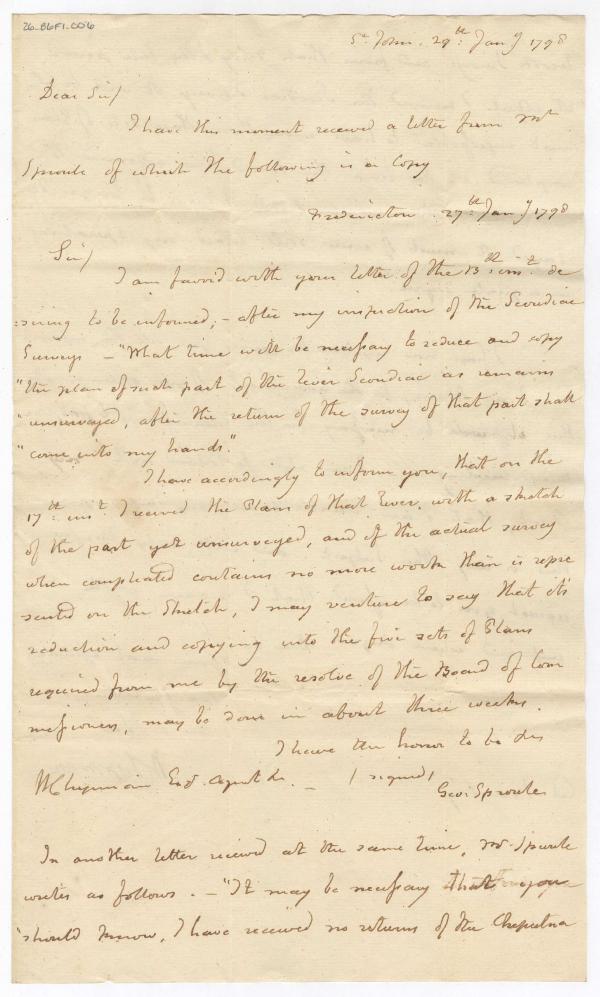 26-B6F1-006
St John. 29th. Jany 1798
Dear Sir/
I have this moment received a letter from Mr
Sproule of which the following is a Copy
Fredericton 27th. Jany 1798
Sir/
I am favord with your letter of the 13th. inst. de
:siring to be informed; - after my inspection of the Scoudiac
Surveys - "What time will be necessary to reduce and copy
"the plan of such part of the River Scoudiac as remains
"unsurveyed, after the return of the survey of that part shall
"come into my hands".
I have accordingly to inform you, that on the
17th. inst. I received the Plans of that River, with a sketch
of the part yet unsurveyed, and if the actual survey
when compleated contains no more work than is repre
sented on the Sketch, I may venture to say that it's
reduction and copying into the five sets of Plans
required from me by the resolve of the Board of Com
missioners, may be done in about three weeks.
I have the honor to be &ca
W Chipman Esqr. Agent &c. - / signed / Geo: Sproule
In another letter received at the same time, Mr. Sproule
writes as follows. - "It may be necessary that you
"should know, I have received no returns of the Cheputna